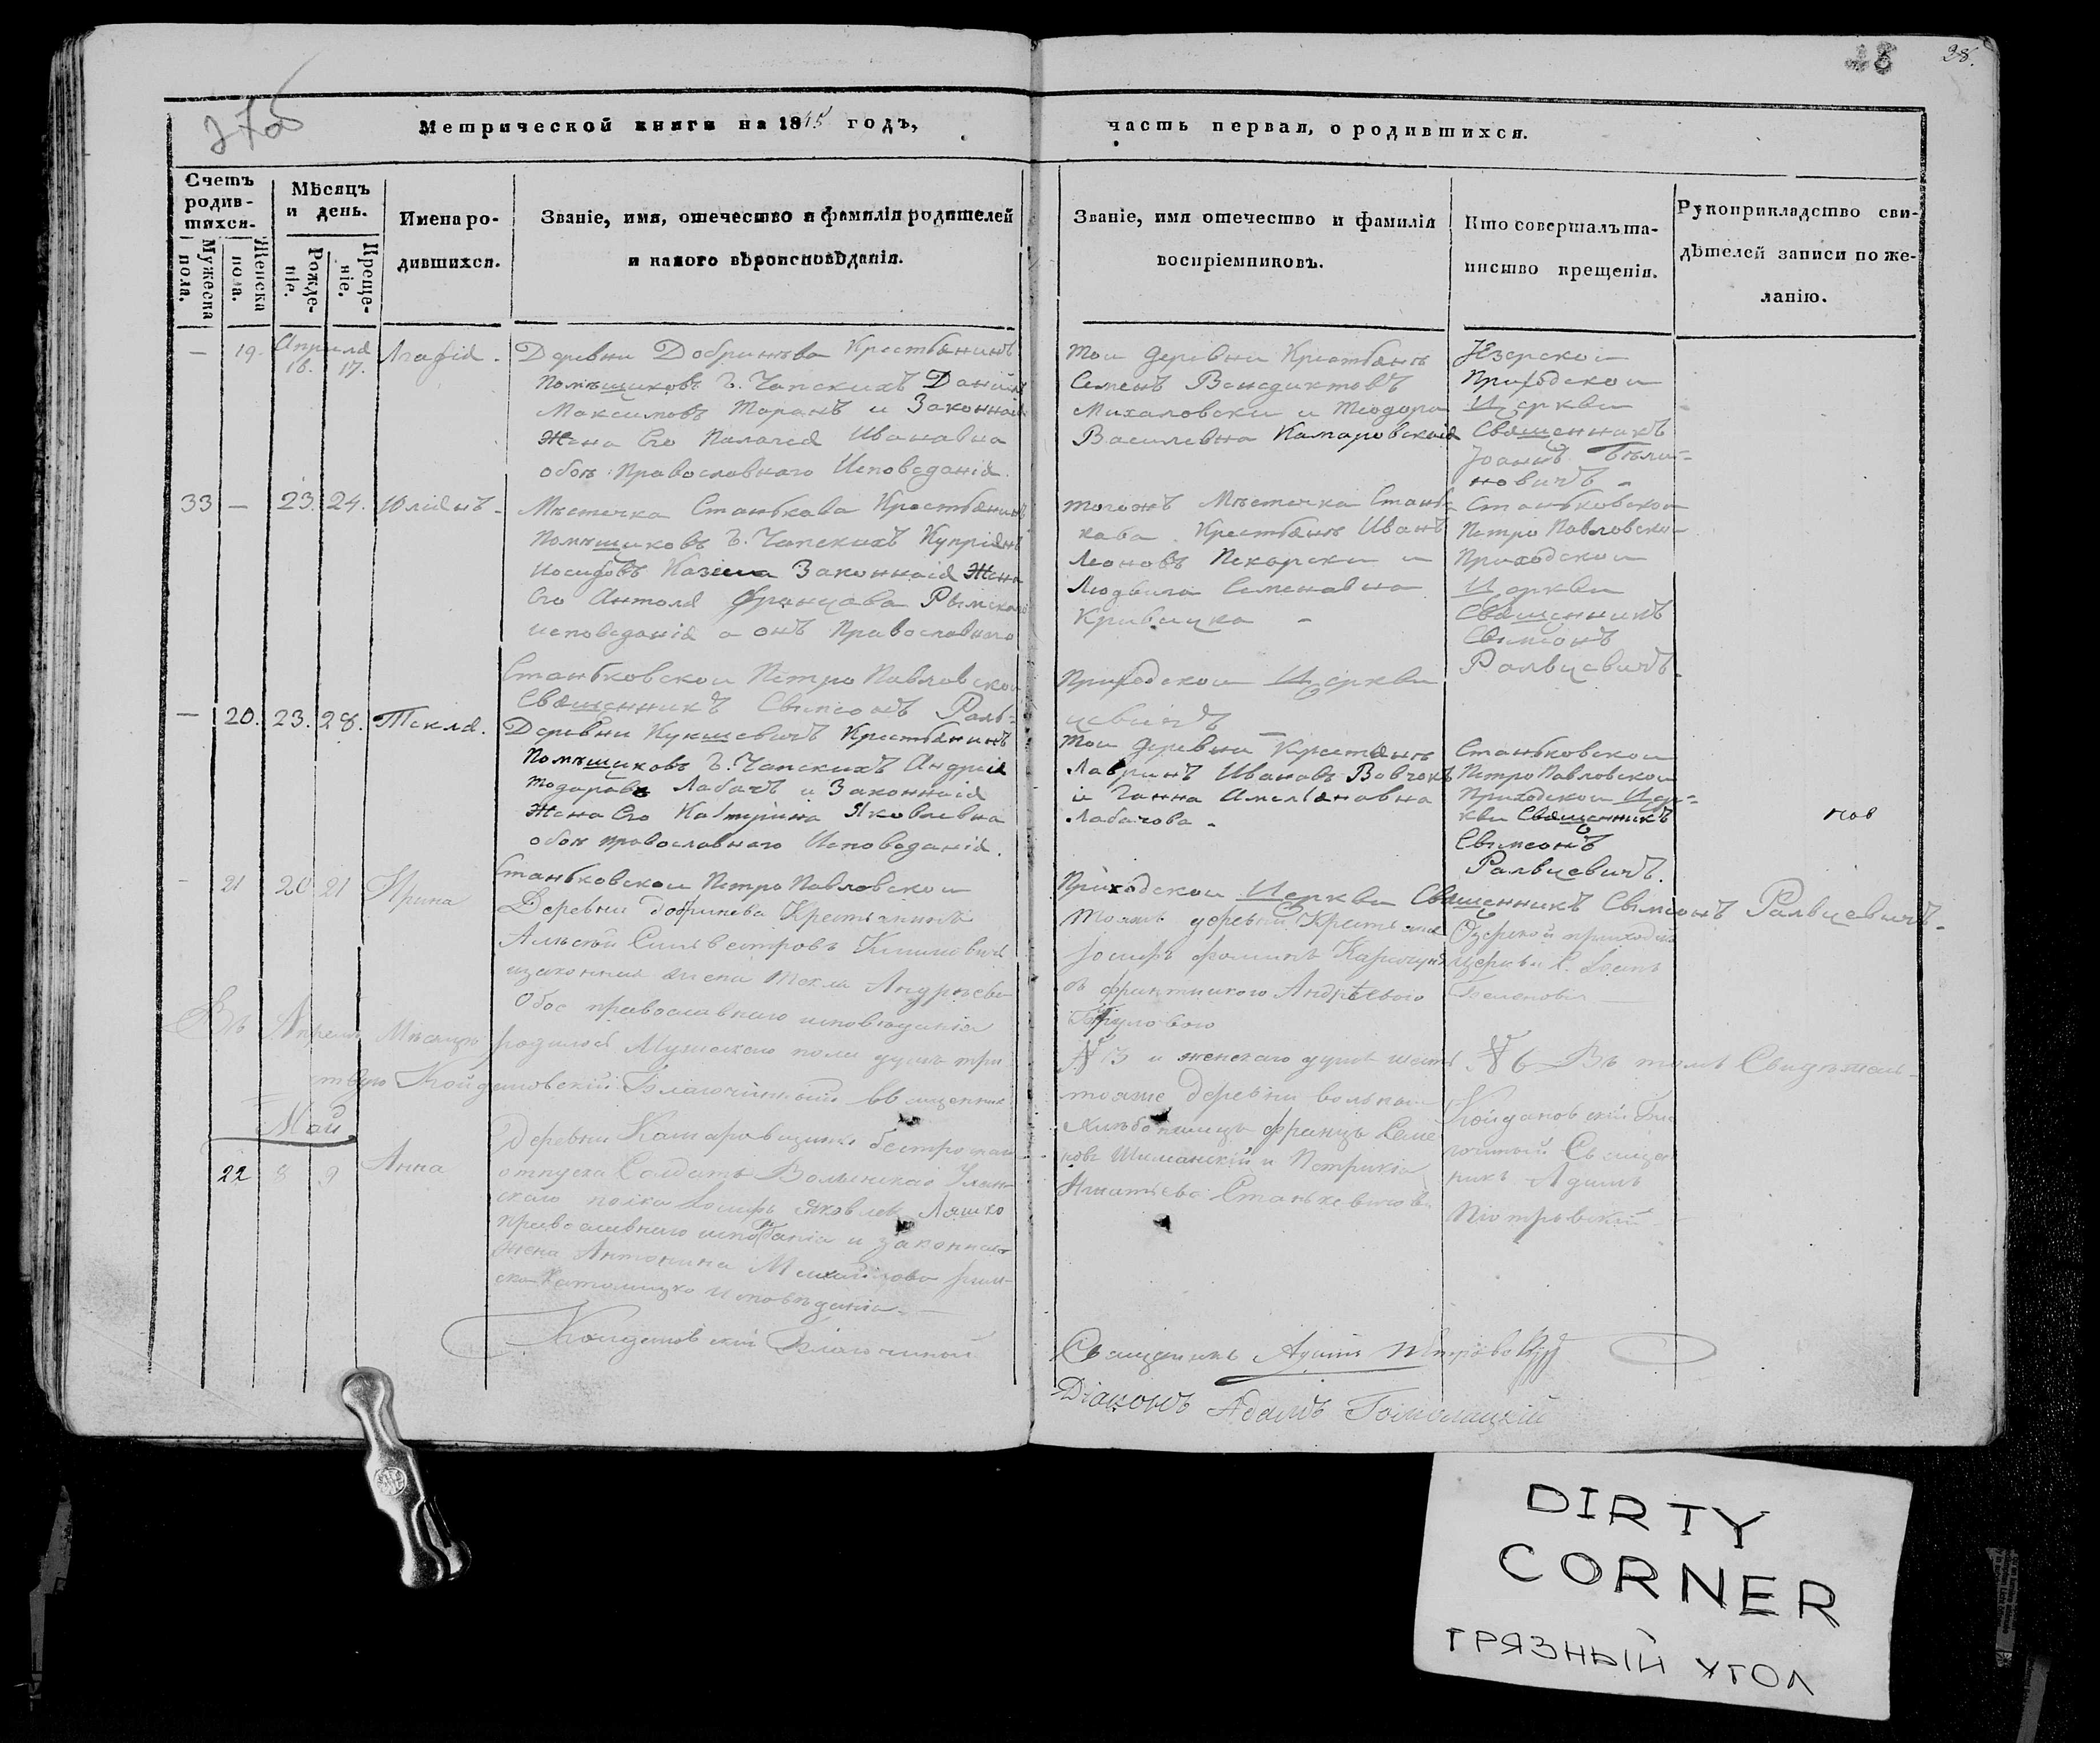 28.
Метрической книги на 1845 годъ,
часть первая, о родившихся.
Счетъ родив-шихся.
Мужеска пола.
Женска пола.
Мѣсяцъ и день.
Рожде-ніе.
Креще-ніе.
Имена ро-
дившихся.
Званіе, имя, отечество и фамилія родителей
и какого вѣроисповѣданія.
Званіе, имя отечество и фамилія
воспріемниковъ.
Кто совершалъ та-
инство крещенія.
Рукоприкладство сви-
дѣтелей записи по же-
ланію.
— 19. Апреля 16. 17. Агафія.
Деревни Добринева Крестьянинъ
Помѣщиковъ Г. Чапскихъ Данійлъ
Максимовъ Таранъ и Законная
Жена Его Палагея Ивановна
обоя Православнаго Исповеданія.
Той деревни Крестьянъ
Семенъ Венедиктовъ
Михаловски и Тѣодора
Василевна Камаровская
Приходской
Церкви
Священникъ
Іоаннъ Беле-
новичъ
33 — 23. 24. Юліянъ
Мѣстечка Станькава Крестьянинъ
Помѣщиковъ Г. Чапскихъ Купріянъ
Иосифовъ Законная Жена
Его Антоля Францава Рымскаго
исповеданія а онъ Православнаго
тогожъ Мѣстечка Стань-
кава Крестьянъ Иванъ
Леоновъ Пекарски и
Людвига Семенавна
Кривицка
Станьковской
Петро Павловской
Приходской
Церкви
Священникъ
Свимеонъ
Ральцевичъ
Станьковской Петро Павловской
Приходской Церкви
Священникъ Свимеонъ Раль-
цевичъ
— 20. 23. 28. Текля.
Деревни Кукшевичъ Крестьянинъ
Помѣщиковъ Г. Чапскихъ Андрей
Тодоровъ Лабачъ и Законная
Жена Его Катерина Яковлевна
обоя православнаго Исповеданія.
Той деревни Крестьянъ
Лавринъ Ивановъ Вовчокъ
и Ганна Амельяновна
Лабачова
Станьковской
Петро Павловской
Приходской Цер-
кви Священникъ
Свимеонъ
Ральцевичъ.
Станьковской Петро Павловской
Приходской Церкви Священникъ Свимеонъ Ральцевичъ
- 21 20 21 Ирина
Деревни Добринева Крестьянинъ
Алексѣй Сильвестровъ Климовичъ
изаконная жена Текля Андрѣева
Обое православнаго исповѣданія
Тояжъ деревни Крестьяне
Іосифъ Фоминъ
Андрѣевою
Озерской приходск
церкви С. Іоаннъ
Беленовичъ
Въ Апреле Мѣсяцѣ родилось Мужескаго пола душъ три
№ 3 и женскаго душъ шесть № 6 Въ томъ Свидѣтель-
ствую Койдановскій Благочинный Священник
Май
22 8 9 Анна
Деревни Камаровщины безсрочнаго
отпуска Солдатъ Волынскаго Улан-
скаго полка Іосифъ Яковлев Ляшко
православнаго исповѣданія и законная
жена Антонина Михайлова рим-
ско Католицко исповѣданія.
тояже деревни вольный
хлѣбопашецъ Францъ Семе
новъ Шиманскій и Петрикія
Игнатьева Станькевичова
Койдановскій Бла
гочинный Священ
никъ Адамъ
Піотровскій
Койдановскій Благочинный
Священникъ Адамъ Піотровскій
Діаконъ Адамъ
DIRTY
CORNER
ГРЯЗНЫЙ УГОЛ